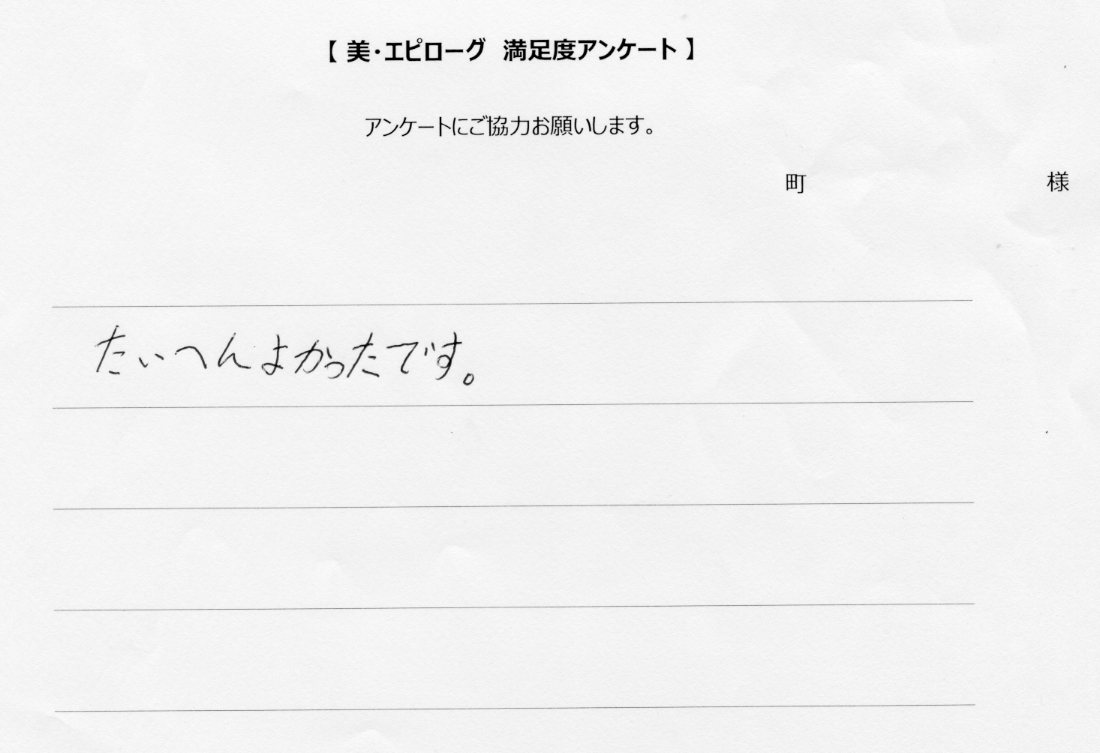 【 美・エピローグ 満足度アンケート 】
アンケートにご協力お願いします。
町 様
たいへんよかったです。